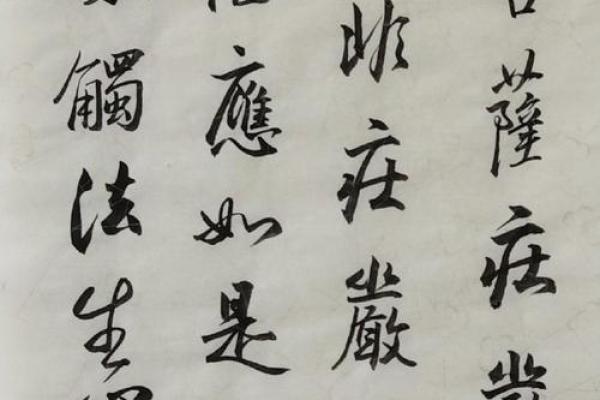 薩莊
非莊嚴
應如是
觸法生